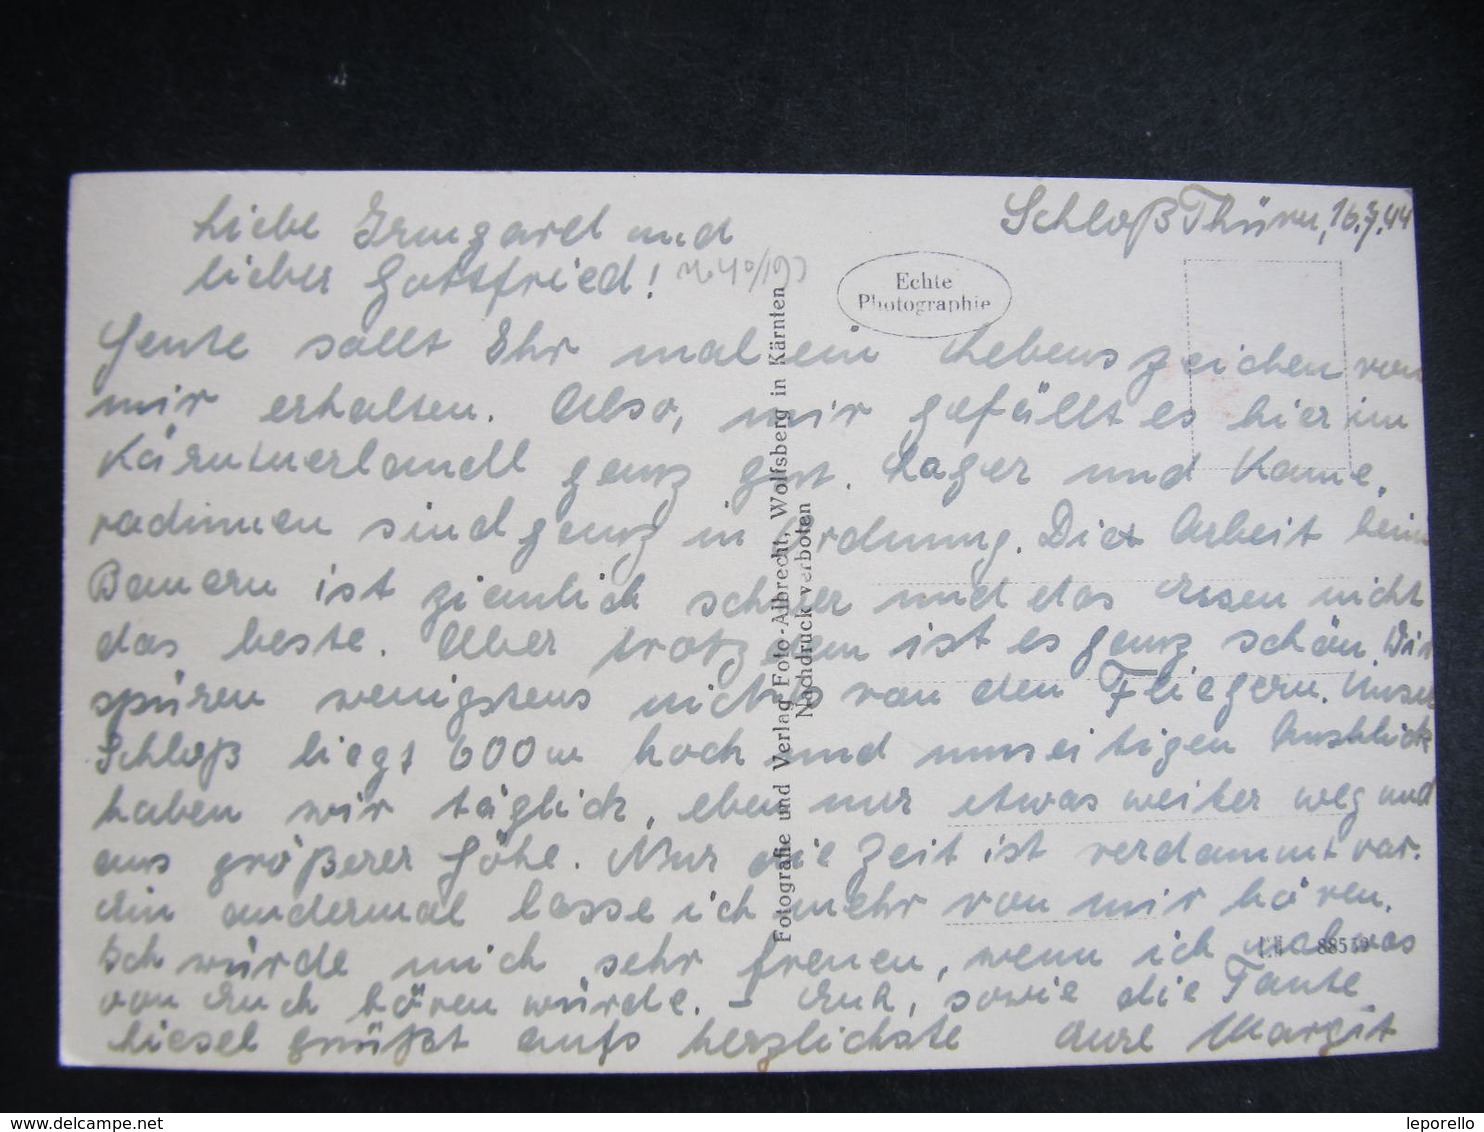 Schloß Thürn, 16.7.44
Liebe Irmgard und
lieber Gottfried!
Echte
Photographie
Heute sollt Ihr mal ein Lebenszeichen von
mir erhalten. Also, mir gefällt es hier im
Kärntnerlandl ganz gut. Lager und Kame-
radinnen sind ganz in Ordnung. Die Arbeit beim
Bauern ist ziemlich schwer und das Essen nicht
das beste. Aber trotzdem ist es ganz schön. Wir
spüren wenigstens nichts von den Fliegern. Unser
Schloß liegt 600 m hoch und unseitigen Ausblick
haben wir täglich, eben nur etwas weiter weg und
aus größerer Höhe. Nur die Zeit ist verdammt rar.
Ein andermal lasse ich mehr von mir hören.
Ich würde mich sehr freuen, wenn ich mal was
von Euch hören würde. – Euch, sowie die Tante
Liesel grüßt aufs herzlichste Eure Margit
Fotografie und Verlag Foto-Albrecht, Wolfsberg in Kärnten
Nachdruck verboten
leporello